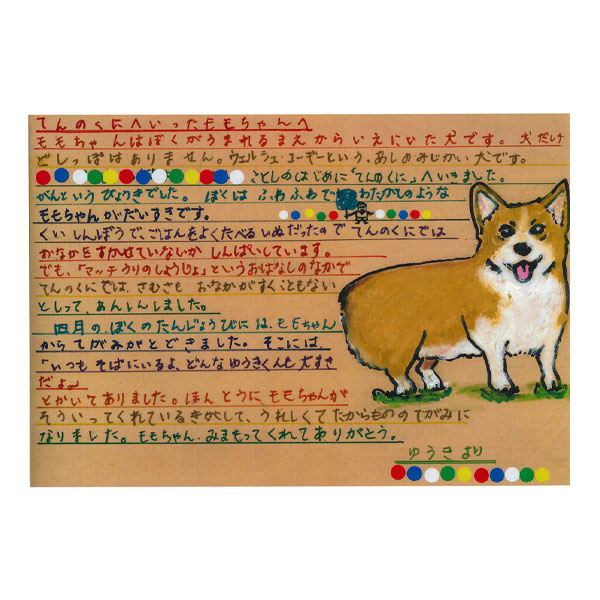 てんのくにへいったモモちゃんへ
モモちゃんはぼくがうまれるまえからいえにいた犬です。犬だけ
どしっぽはありません。ウェルシュ・コーギーという、あしのみじかい犬です。
ことしのはじめに「てんのくに」へいきました。
がんというびょうきでした。ぼくは ふわふわで わたがしのような
モモちゃんがだいすきです。
くいしんぼうで、ごはんをよくたべるいぬだったのでてんのくにでは
おなかをすかせていないか しんぱいしています。
でも、「マッチうりのしょうじょ」というおはなしのなかで
てんのくにでは、さむさも おなかがすくこともない
としって、あんしんしました。
四月の、ぼくのたんじょうびには、モモちゃん
からてがみがとどきました。そこには、
「いつもそばにいるよ、どんなゆうきくんも大すき
だよ。」
とかいてありました。ほんとうに、モモちゃんが
そういってくれているきがして、うれしくてたからもののてがみに
なりました。モモちゃん、みまもってくれてありがとう。
ゆうきより